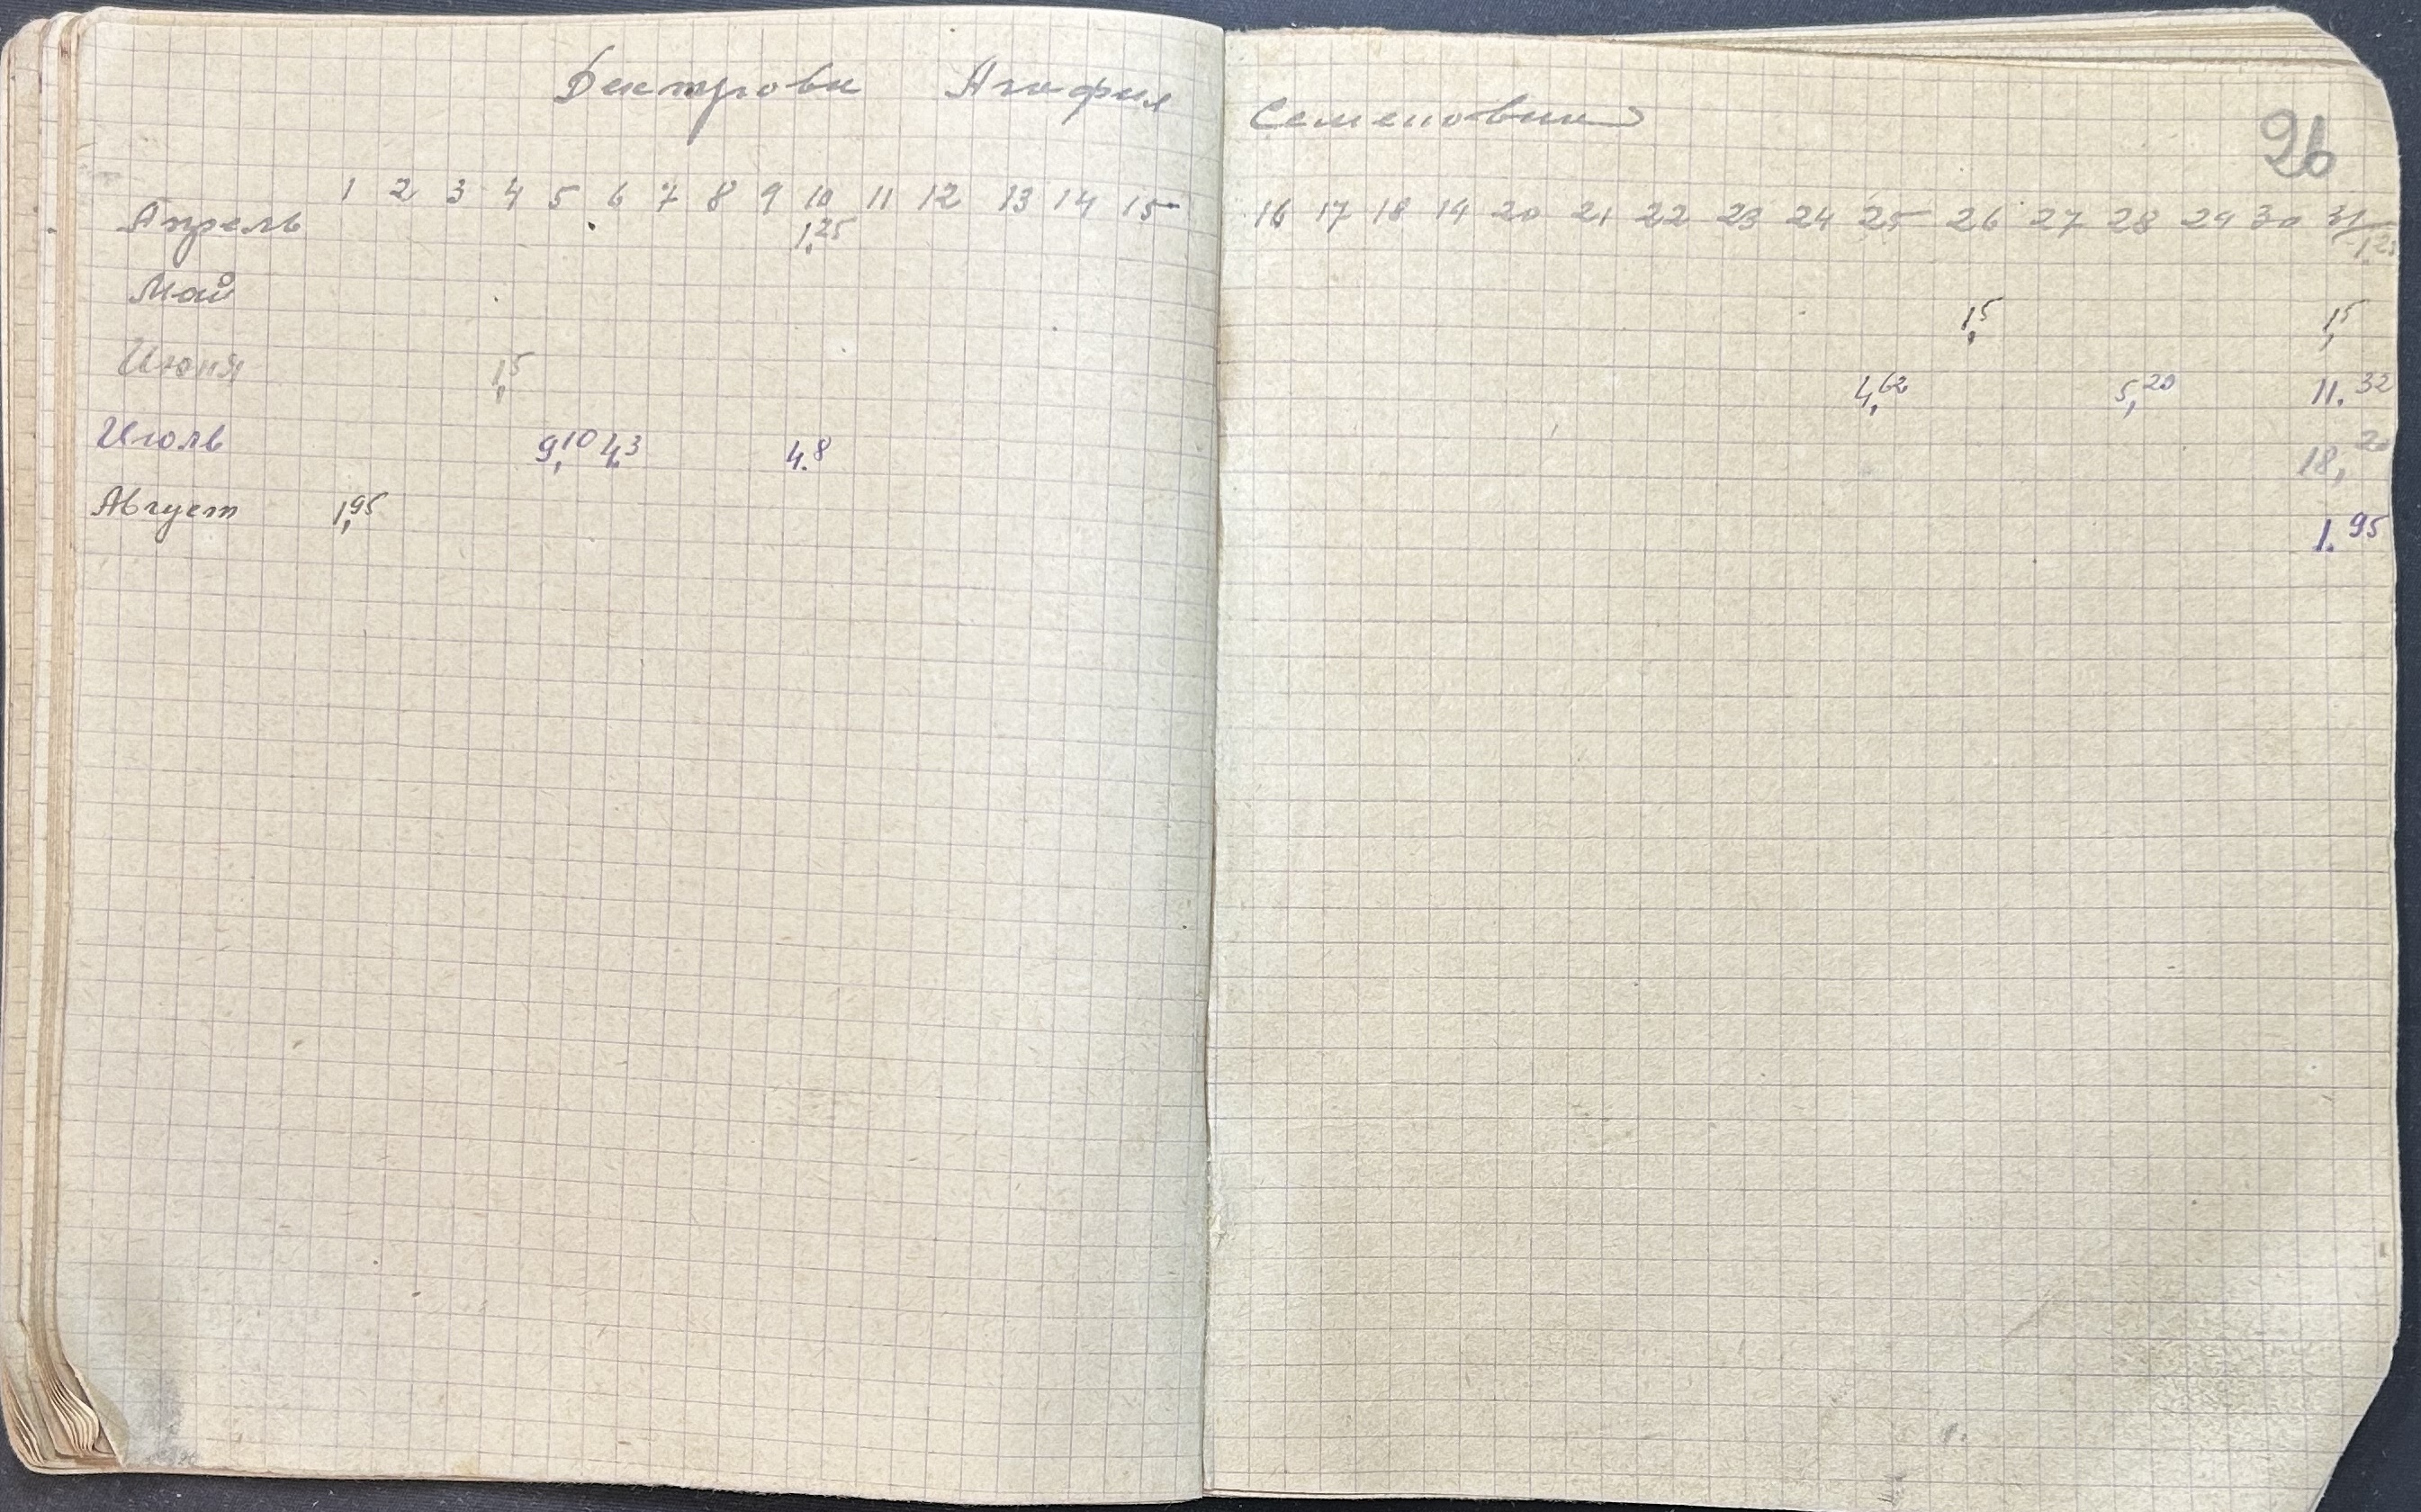 Дектрова Агафия Семеновна
26
1 2 3 4 5 6 7 8 9 10 11 12 13 14 15 16 17 18 19 20 21 22 23 24 25 26 27 28 29 30 31
Апрель 1,25 1,25
Май 1,5 1,5
Июня 1,5 4,62 5,20 11.32
Июль 9,10 4,3 4.8 18,20
Август 1,95 1.95